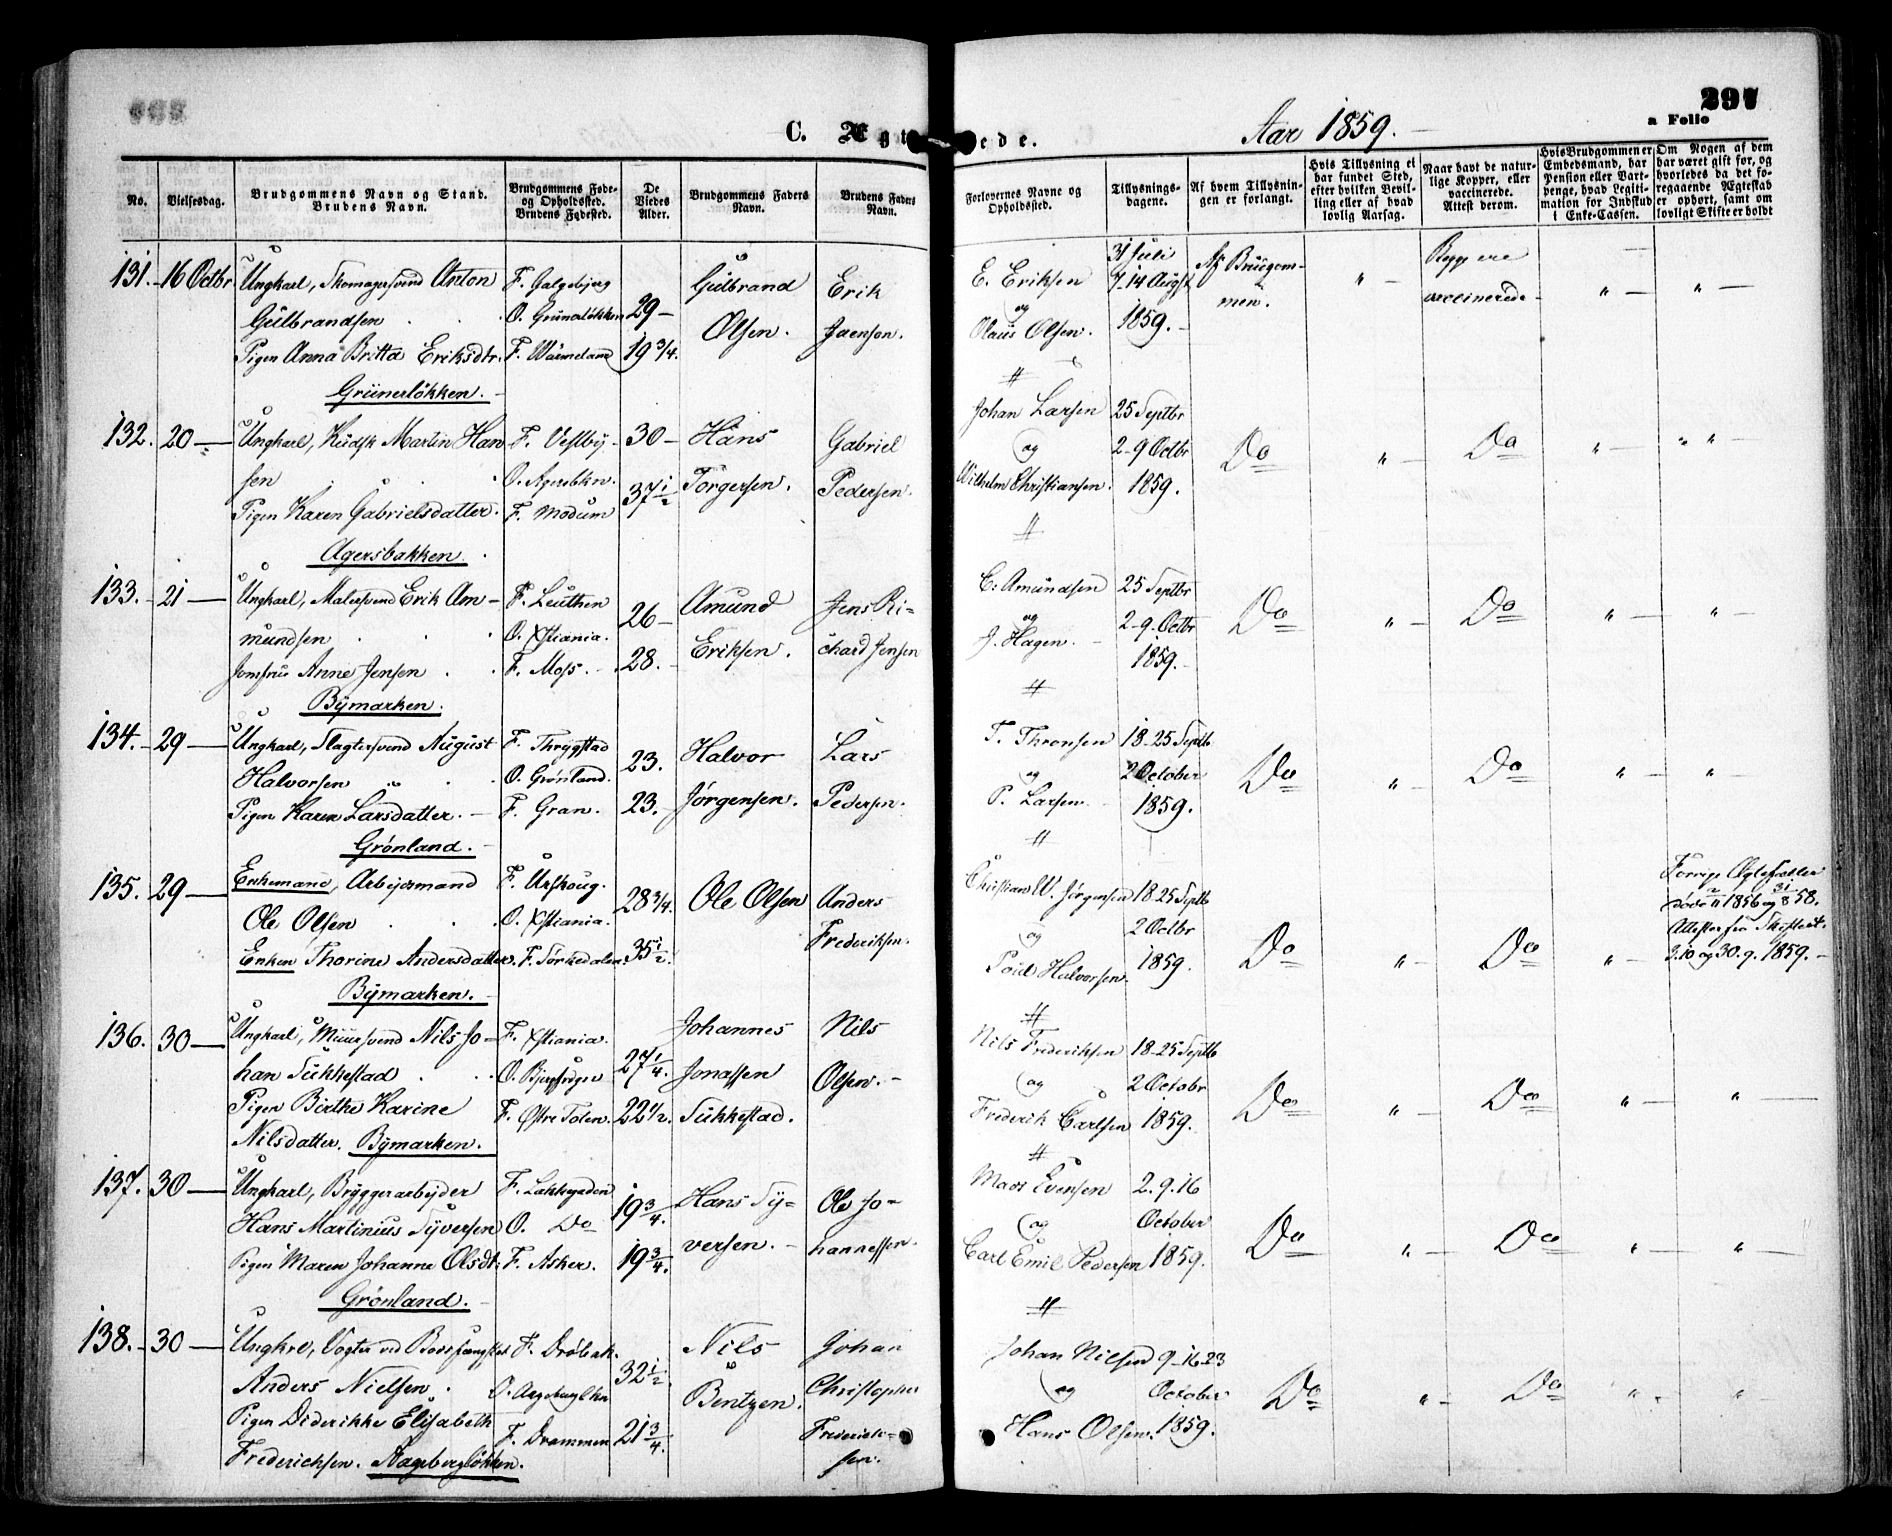 C. Ægt
ede.
Aar 1859.
297
a Folio
No.
Vielsesdag.
Brudgommens Navn og Stand.
Brudens Navn.
Brudgommens Føde-
og Opholdssted.
Brudens Fødested.
De
Viedes
Alder.
Brudgommens Faders
Navn.
Brudens Faders
Navn.
Forlovernes Navne og
Opholdssted.
Tillysnings-
dagene.
Af hvem Tillysnin-
gen er forlangt.
Hvis Tillysning ei
har fundet Sted,
efter hvilken Bevil-
ling eller af hvad
lovlig Aarsag.
Naar havt de natur-
lige Kopper, eller
vaccinerede.
Attest derom.
Hvis Brudgommen er
Embedsmand, har
Pension eller Vart-
penge, hvad Legiti-
mation for Indskud
i Enke-Cassen.
Om Nogen af dem
har været gift før, og
hvorledes da det fo-
regaaende Ægteskab
er ophørt, samt om
lovligt Skifte er holdt
131. 16 Octbr Ungkarl, Skomagersvend Anton F. Galgebjerg Gulbrand Erik E. Eriksen 31 Juli Af Brudgom- Begge ere
Gulbrandsen O. Grünerløkken 29 Olsen. Jaensen. og 7-14 Augst men. vaccinerede
Pigen Anna Britta Eriksdtr. F. Wärmeland 19 3/4. Olaus Olsen. 1859.
Grünerløkken.
132. 20 Ungkarl, Kudsk Martin Han F. Vestby 30 Hans Gabriel Johan Larsen 25 Septbr
sen O. Agersbkn. Torgersen. Pedersen. og 2-9 Octbr Do Do
Pigen Karen Gabrielsdatter. F. Modum 37 1/2 Wilhelm Christiansen. 1859.
Agersbakken
133. 21 Ungkarl, Malersvend Erik Am- F. Leuthen 26 Amund Jens Ri- C. Amundsen 25 Septbr
mundsen O. Xstiania. Eriksen. chard Jensen og 2-9 Octbr Do Do
Jomfru Anne Jensen F. Moss. 28. J. Hagen. 1859.
Bymarken.
134. 29 Ungkarl, Slagtersvend August F. Thrygstad 23. Halvor Lars T. Thronsen 18-25 Septb
Halvorsen O. Grønland. Jørgensen. Pedersen. og 2 October Do Do
Pigen Karen Larsdatter. F. Gran. 23. P. Larsen 1859.
Grønland.
135. 29 Enkemand, Arbejdsmand F. Urskoug. 28 3/4. Ole Olsen Anders Christian W. Jørgensen 18-25 Septb Forrige Ægtefæller
Ole Olsen O. Xstiania. Frederiksen. og 2 Octbr Do Do døde 2/11 1856 og 31/8 58.
Enken Thorine Andersdatter. F. Sørkedalen. 35 1/2. Halvorsen. 1859. Attester fra Skifteret.
3.10 og 30.9. 1859.
Bymarken.
136. 30 Ungkarl, Muursvend Nils Jo- F. Xstiania. 27 1/4. Johannes Nils Nils Frederiksen 18-25 Septb
han Sukkestad O. Jonassen Olsen. og 2 Octobr Do Do
Pigen Birthe Karine F. Østre Toten. 22 1/2. Sukkestad. Frederik Carlsen 1859.
Nilsdatter. Bymarken.
137. 30 Ungkarl, Bryggerarbejder F. Lakkegaden 19 3/4. Hans Sy- Ole Jo- Mads Evensen 2.9.16
Hans Martinius Syversen O. Do versen. hannessen. og October Do Do
Pigen Maren Johanne Olsdt. F. Asker. 19 3/4. Carl Emil Pedersen 1859.
Grönland.
138. 30 Ungkrl, Vogter ved Bodsfængslet F. Drøbak. 32 1/2. Nils Johan Johan Nilsen 9-16-23
Anders Nielsen. Bentzen. Christopher og October Do Do
Pigen Diderikke Elisabeth F. Drammen 21 3/4. Frederik- Hans Olsen. 1859.
Frederichsen. Aageberglökken. sen.